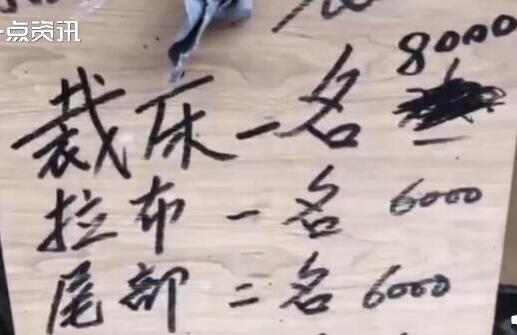 一点资讯
8000
裁床一名
拉布一名 6000
尾部二名 6000